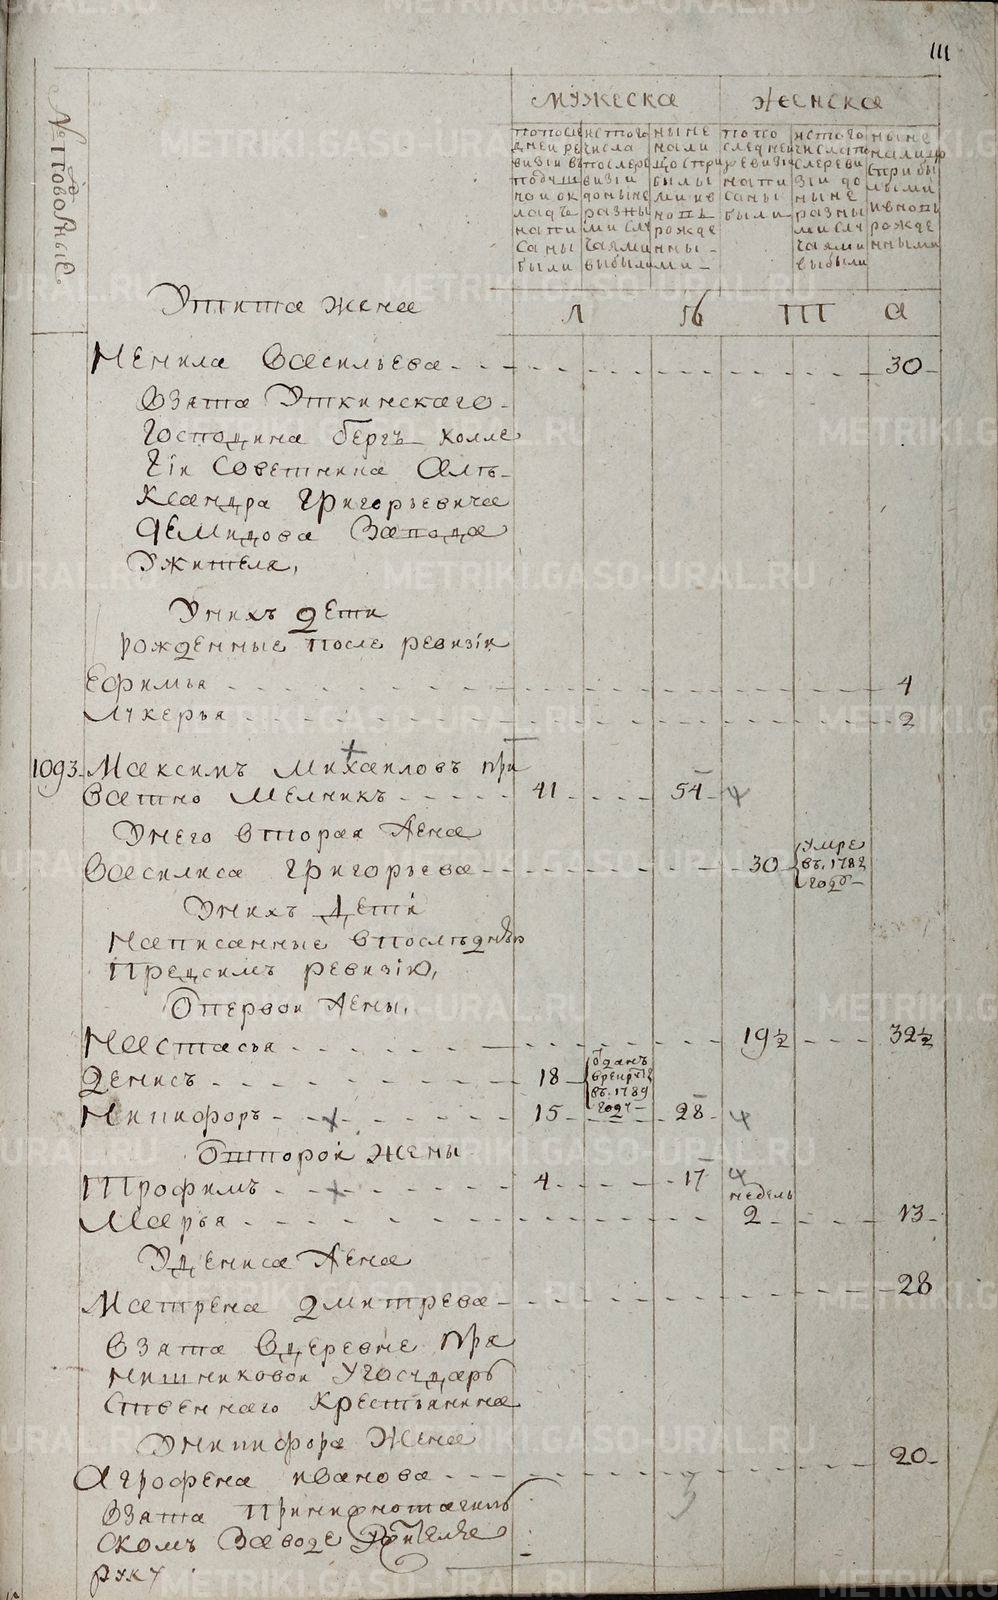 111
мужеска женска
№ подворныя
попосле
дней ре
визіи въ
подуш
ной ок
ладъ
напи
саны
были
истого
числа
после
визіи
доныне
разны
ми слу
чаями
выбыли
ныне
нали
цо спри
былы
ми ив
но пъ
рожде
нны
ми
попо
следнеи
ревизіи
напи
саны
были
истого
числа по
слереви
зіи до
ныне
разны
ми слу
чаями
выбыли
ныне
налицо
сприбы
лыми
ивнопъ
рожде
нными
Утита жена
Ненила Васильева 30
Взята Уткинскаго
Господина бергъ колле
гіи Советника Алѣ
ксандра Григорьевича
Демидова Завода
Ужителя,
Унихъ дети
рожденные после ревизіи
Ефимья 4
Лукерья 2
1093 Максимъ Михаиловъ при
ватно мелникъ 41 54
Унего вторая жена
Василиса Григорьева 30 умре въ 1782 годѣ
Унихъ дети
Написанные впоследнею
Предсимъ ревизію,
Отпервои жены,
Настасья 19½ 32½
Денисъ 18 Отданъ врекруты въ 1789 году
Никифоръ 15 28
Отвторой жены
Трофимъ 4 17
Марья недель 2 13
Удениса жена
Матрена Дмитрева 28
Взята вдеревне Пря
нишниковой угосудар
ственнаго крестьянина
Уникифора жена
Агрофена иванова 20
Взята Принижнотагиль
скомъ Заводе